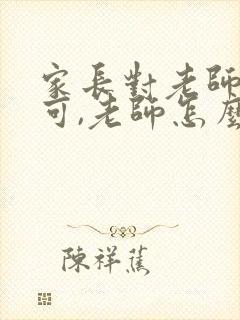 家長對老師
可,老師怎麼
陳祥蕉